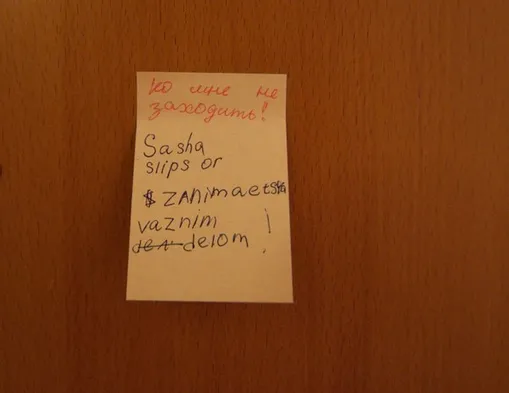 ко мне не
заходить!
Sasha
slips or
zanimaetsa
vaznim
delom!